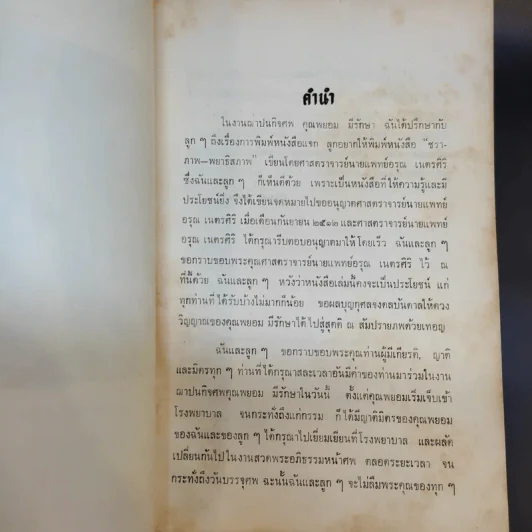 คำนำ
ในงานฌาปนกิจศพ คุณพยอม มีรักษา ฉันได้ปรึกษากับ
ลูก ๆ ถึงเรื่องการพิมพ์หนังสือแจก ลูกอยากให้พิมพ์หนังสือ “ชรา-
ภาพ—พยาธิสภาพ” เขียนโดยศาสตราจารย์นายแพทย์อรุณ เนตรศิริ
ซึ่งฉันและลูก ๆ ก็เห็นดีด้วย เพราะเป็นหนังสือที่ให้ความรู้และมี
ประโยชน์ยิ่ง จึงได้เขียนจดหมายไปขออนุญาตศาสตราจารย์นายแพทย์
อรุณ เนตรศิริ เมื่อเดือนกันยายน ๒๕๑๒ และศาสตราจารย์นายแพทย์
อรุณ เนตรศิริ ได้กรุณารีบตอบอนุญาตมาให้โดยเร็ว ฉันและลูก ๆ
ขอกราบขอบพระคุณศาสตราจารย์นายแพทย์อรุณ เนตรศิริ ไว้ ณ
ที่นี้ด้วย ฉันและลูก ๆ หวังว่าหนังสือเล่มนี้คงจะเป็นประโยชน์ แก่
ทุกท่านที่ได้รับบ้างไม่มากก็น้อย ขอผลบุญกุศลจงดลบันดาลให้ดวง
วิญญาณของคุณพยอม มีรักษาได้ไปสู่สุคติ ณ สัมปรายภพด้วยเทอญ
ฉันและลูก ๆ ขอกราบขอบพระคุณท่านผู้มีเกียรติ, ญาติ
และมิตรทุก ๆ ท่านที่ได้กรุณาสละเวลาอันมีค่าของท่านมาร่วมในงาน
ฌาปนกิจศพคุณพยอม มีรักษาในวันนี้ ตั้งแต่คุณพยอมเริ่มเจ็บเข้า
โรงพยาบาล จนกระทั่งถึงแก่กรรม ก็ได้มีญาติมิตรของคุณพยอม
ของฉันและของลูก ๆ ได้กรุณาไปเยี่ยมเยียนที่โรงพยาบาล และผลัด
เปลี่ยนกันไปในงานสวดพระอภิธรรมหน้าศพ ตลอดระยะเวลา จน
กระทั่งถึงวันบรรจุศพ ฉะนั้นฉันและลูก ๆ จะไม่ลืมพระคุณของทุก ๆ